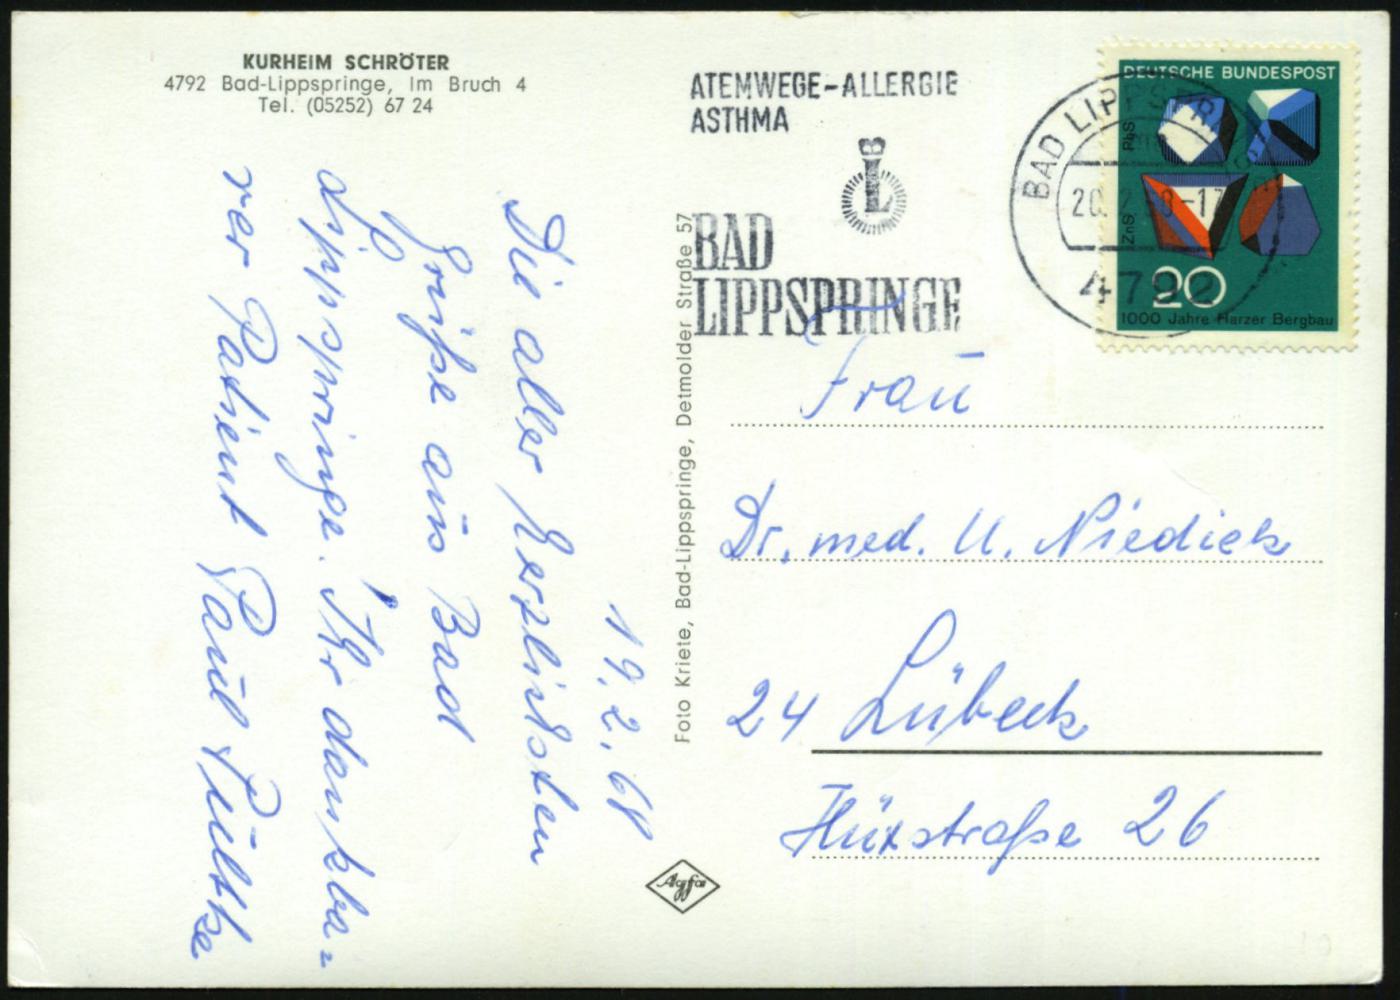 KURHEIM SCHRÖTER
4792 Bad-Lippspringe, Im Bruch 4
Tel. (05252) 67 24
19.2.68
Die aller herzlichsten
Grüße aus Bad
Lippspringe. Ihr dankba=
rer Patient Paul Pültke
Foto Kriete, Bad-Lippspringe, Detmolder Straße 57
Agfa
ATEMWEGE-ALLERGIE
ASTHMA
L
BAD
LIPPSPRINGE
BAD LIPPSPRINGE
20.2.68-17
4792
DEUTSCHE BUNDESPOST
PbS
ZnS
20
1000 Jahre Harzer Bergbau
Frau
Dr. med. U. Niedieck
24 Lübeck
Hüxstraße 26